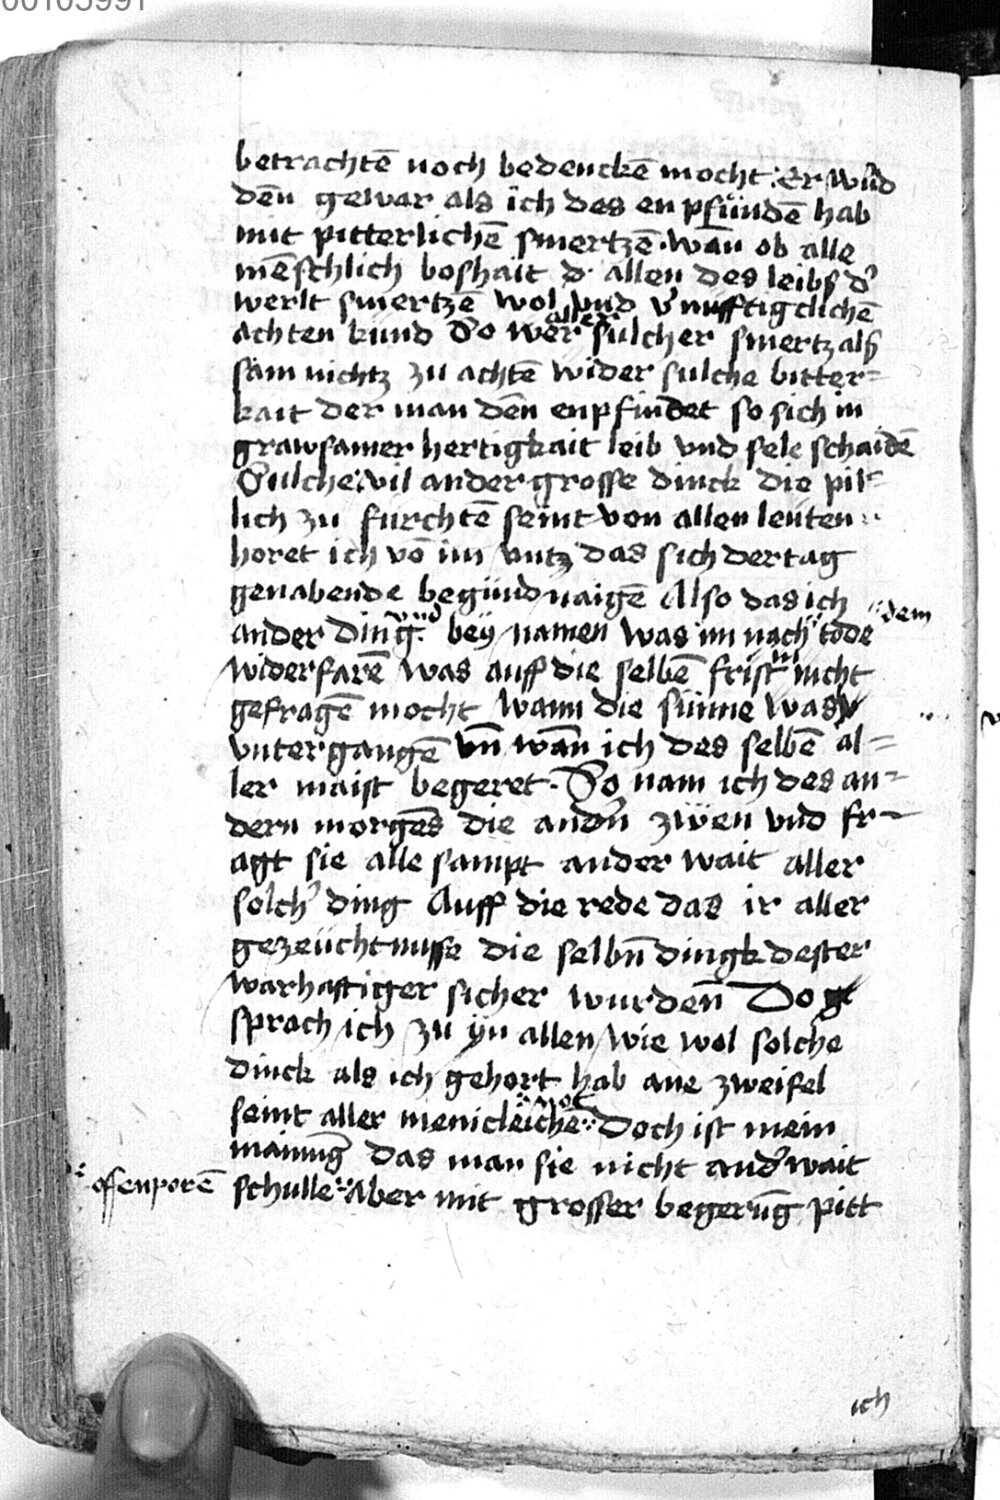 00103991
betrachtē noch bedenckē mocht. Er wu̇d
dēn gewar als ich des enpfündē hab
mit pitterlichē smertzē. wān ob alle
mēschlich boshait d' allen des leibs d'
werlt smertzē wol vnd v'nufftigclichē
achten kund do wer aller sulcher smertz als
sam nichtz zu achtē wider sulche bitter=
kait der man dēn enpfindet so sich in
grawsamer hertigkait leib vnd sele schaidē
Sulche vil ander grosse dinck die pil=
lich zu furchtē seint von allen leuten
horet ich vō im vntz das sich der tag
genabende begund naigē Also das ich
ander ding vnd bey namen was im nach dem tode
widerfarē was auff die selbē frist in nicht
gefragē mocht Wann die sunne was
vntergangē vn̄ wān ich des selbē al=
ler maist begeret. So nam ich des an=
dern morgēs die and'n zwen vnd fr=
agt sie alle sampt ander wait aller
solch' ding Auff die rede das ir aller
gezeuchtnusse die selbn̄ dingk dester
warhafftiger sicher wurden̄ Do
sprach ich zu yn allen wie wol solche
dinck als ich gehort hab ane zweifel
seint aller menicleichē not Doch ist mein
mainūg das man sie nicht and'wait
offenporē schulle Aber mit grosser begerūg pitt
ich